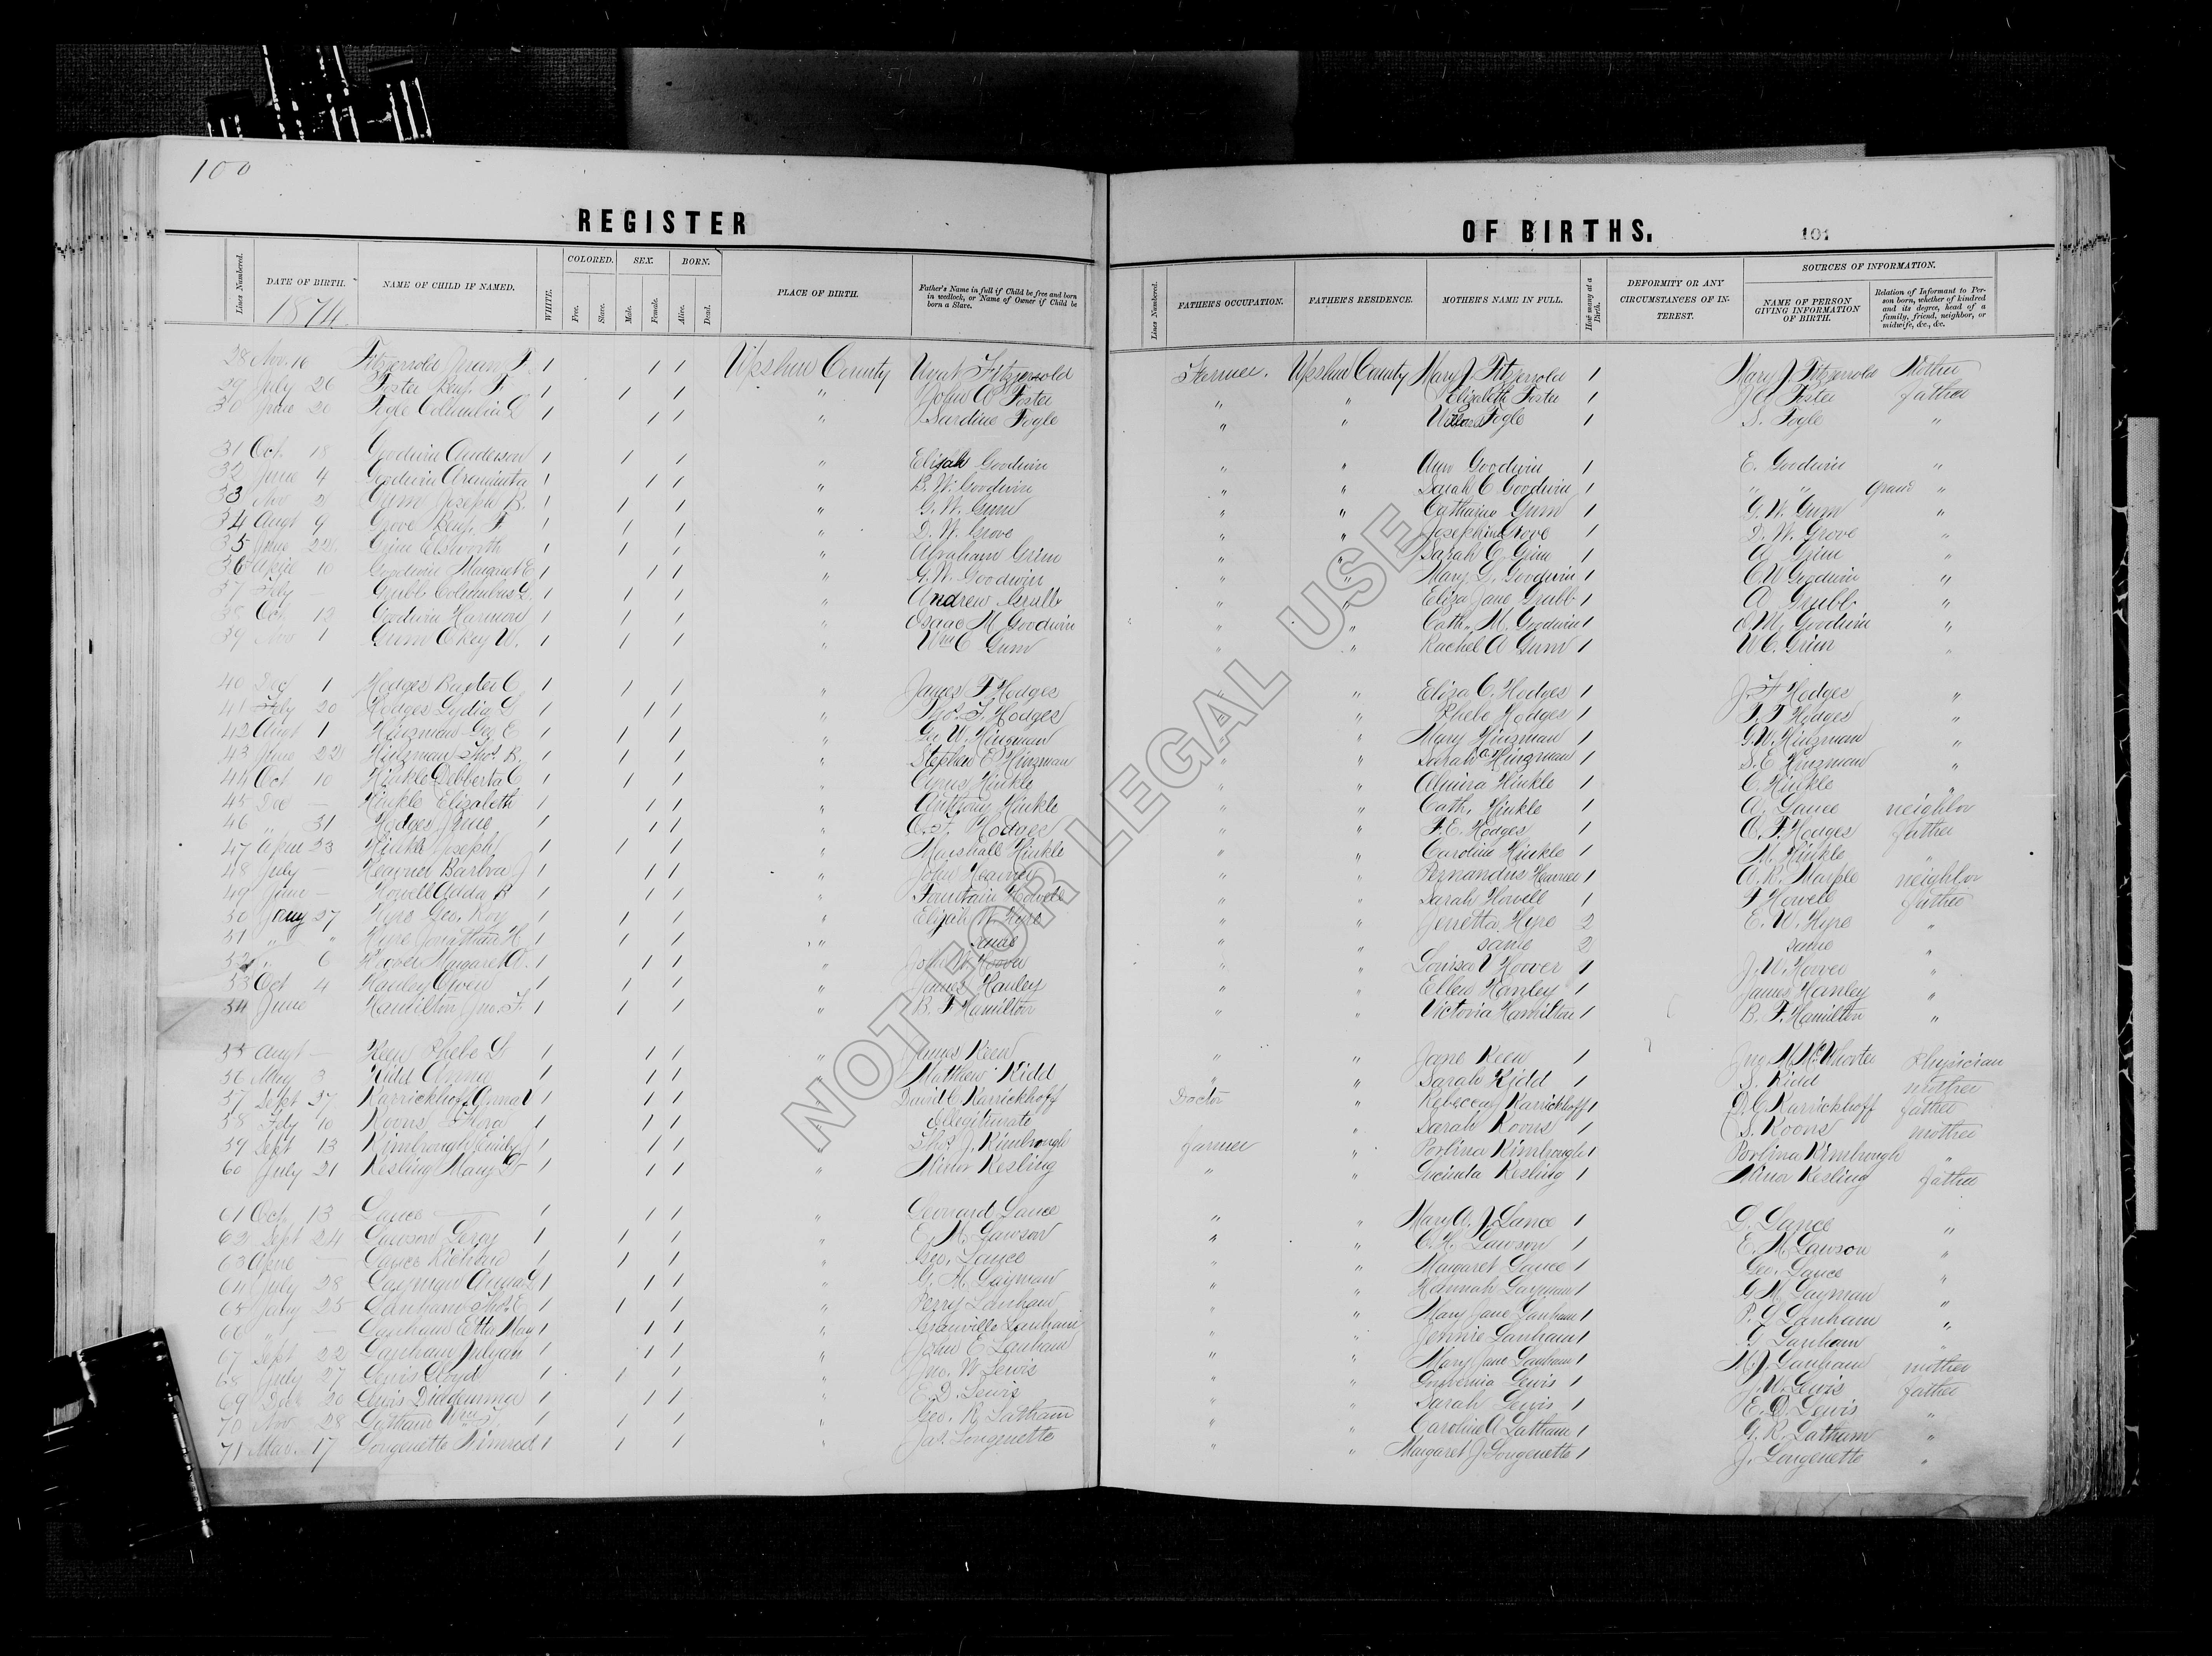 100
REGISTER OF BIRTHS.
101
Lines Numbered. DATE OF BIRTH. NAME OF CHILD IF NAMED. WHITE. COLORED. Free. Slave. SEX. Male. Female. BORN. Alive. Dead. PLACE OF BIRTH. Father's Name in full if Child be free and born in wedlock, or Name of Owner if Child be born a Slave.
Lines Numbered. FATHER'S OCCUPATION. FATHER'S RESIDENCE. MOTHER'S NAME IN FULL. How many at a Birth. DEFORMITY OR ANY CIRCUMSTANCES OF INTEREST. SOURCES OF INFORMATION. NAME OF PERSON GIVING INFORMATION OF BIRTH. Relation of Informant to Person born, whether of kindred and its degree, head of a family, friend, neighbor, or midwife, &c., &c.
1874
28 Nov. 16 Fitzgerrold F. 1 1 1 Upshur County Fitzgerrold Farmer. Upshur County Mary J. Fitzgerrold 1 Mary J. Fitzgerrold Mother
29 July 26 Foster Benj. F. 1 1 1 " John A Foster " " Elizabeth Foster 1 J A Foster father
30 June 20 Fogle Columbia L 1 1 1 " Sardine Fogle " " Fogle 1 S. Fogle "
31 Oct. 18 Goodwin Anderson 1 1 1 " Elijah Goodwin " " Ann Goodwin 1 E. Goodwin "
32 June 4 Goodwin Araminta 1 1 1 " B. W. Goodwin " " Sarah C Goodwin 1 " " Grand "
33 Nov 2 Gum Joseph B. 1 1 1 " G. W. Gum " " Catharine Gum 1 G. W. Gum "
34 Augt 9 Grove Benj. F. 1 1 1 " D. W. Grove " " Josephine Grove 1 D. W. Grove "
35 June 22 Grim Elsworth 1 1 1 " Abraham Grim " " Sarah E. Grim 1 A Grim "
36 April 10 Goodwin Margaret E 1 1 1 " G. W. Goodwin " " Mary Goodwin 1 Goodwin "
37 Feby — Grubb Columbus L. 1 1 1 " Andrew Grubb " " Eliza Jane Grubb 1 A Grubb "
38 Oct 12 Goodwin Harmon 1 1 1 " Isaac M Goodwin " " Cath. M. Goodwin 1 I. M. Goodwin "
39 Nov 1 Gum Okey W. 1 1 1 " Wm C Gum " " Rachel A Gum 1 W C. Gum "
40 Dec 1 Hodges Baxter C 1 1 1 " James F Hodges " " Eliza C. Hodges 1 J. F Hodges "
41 Feby 20 Hodges Lydia G 1 1 1 " Thos. F. Hodges " " Phebe Hodges 1 T. F Hodges "
42 Augt 1 Hinzman Geo E 1 1 1 " Geo W. Hinzman " " Mary Hinzman 1 G. W. Hinzman "
43 June 22 Hinzman Thos. B. 1 1 1 " Stephen E. Hinzman " " Sarah C Hinzman 1 S. E Hinzman "
44 Oct 10 Hinkle C 1 1 1 " Cyrus Hinkle " " Almira Hinkle 1 C. Hinkle "
45 Dec — Hinkle Elizabeth 1 1 1 " Anthony Hinkle " " Cath. Hinkle 1 A. Lance neighbor
46 " 31 Hodges Irene 1 1 1 " A. F. Hodges " " F. E. Hodges 1 A. F. Hodges father
47 April 23 Hinkle Joseph 1 1 1 " Marshall Hinkle " " Caroline Hinkle 1 M. Hinkle "
48 July — Heavner Barbra J 1 1 1 " John Heavner " " Heavner 1 A. R. Marple neighbor
49 June — Howell Adda B 1 1 1 " Fountain Howell " " Sarah Howell 1 F Howell father
50 Jany 27 Hyre Geo. Roy 1 1 1 " Elijah W. Hyre " " Jenetta Hyre 2 E. W. Hyre "
51 " " Hyre Jonathan H. 1 1 1 " same " " same 2 same "
52 " 6 Hoover Margaret A. 1 1 1 " John W. Hoover " " Louisa V Hoover 1 J. W. Hoover "
53 Oct 4 Hanley Owen 1 1 1 " James Hanley " " Ellen Hanley 1 James Hanley "
54 June Hamilton Jno. F. 1 1 1 " B. F Hamilton " " Victoria Hamilton 1 B. F. Hamilton "
55 Augt — Keen Phebe L 1 1 1 " James Keen " " Jane Keen 1 Jno. M. McWhorter Physician
56 May 3 Kidd Anna 1 1 1 " Matthew Kidd " " Sarah Kidd 1 S. Kidd mother
57 Sept 27 Karrickhoff Anna V 1 1 1 " David C Karrickhoff Doctor " Rebecca J Karrickhoff 1 D. C. Karrickhoff father
58 Feby 10 Koons Flora 1 1 1 " Illegitimate " Sarah Koons 1 S. Koons mother
59 Sept 13 Kimbrough Emily J 1 1 1 " Thos. J. Kimbrough farmer " Perlina Kimbrough 1 Perlina Kimbrough "
60 July 21 Kesling Mary 1 1 1 " Minor Kesling " " Lucinda Kesling 1 Minor Kesling father
61 Oct. 13 Lance — 1 1 1 " Leonard Lance " " Mary A. J. Lance 1 L. Lance "
62 Sept 24 Lawson Leroy 1 1 1 " E. M Lawson " " C. H. Lawson 1 E. M Lawson "
63 April — Lance Richard 1 1 1 " Geo. Lance " " Margaret Lance 1 Geo. Lance "
64 July 28 Layman 1 1 1 " G. M. Layman " " Hannah Layman 1 G M. Layman "
65 Jany 25 Lanham Thos. E 1 1 1 " Perry Lanham " " Mary Jane Lanham 1 P. G Lanham "
66 " — Lanham Etta May 1 1 1 " Granville Lanham " " Jennie Lanham 1 G Lanham "
67 Sept 22 Lanham Julyan 1 1 1 " John E Lanham " " Mary Jane Lanham 1 M. J. Lanham mother
68 July 27 Lewis Cloyd 1 1 1 " Jno. W Lewis " " Lewis 1 J. W. Lewis father
69 Dec 20 Lewis 1 1 1 " E. D. Lewis " " Sarah Lewis 1 E. D. Lewis "
70 Nov 28 Latham Wm 1 1 1 " Geo. R. Latham " " Caroline A Latham 1 G. R. Latham "
71 Mar. 17 Longenette Nimrod 1 1 1 " Jas. Longenette " " Margaret J. Longenette 1 J. Longenette "
NOT FOR LEGAL USE